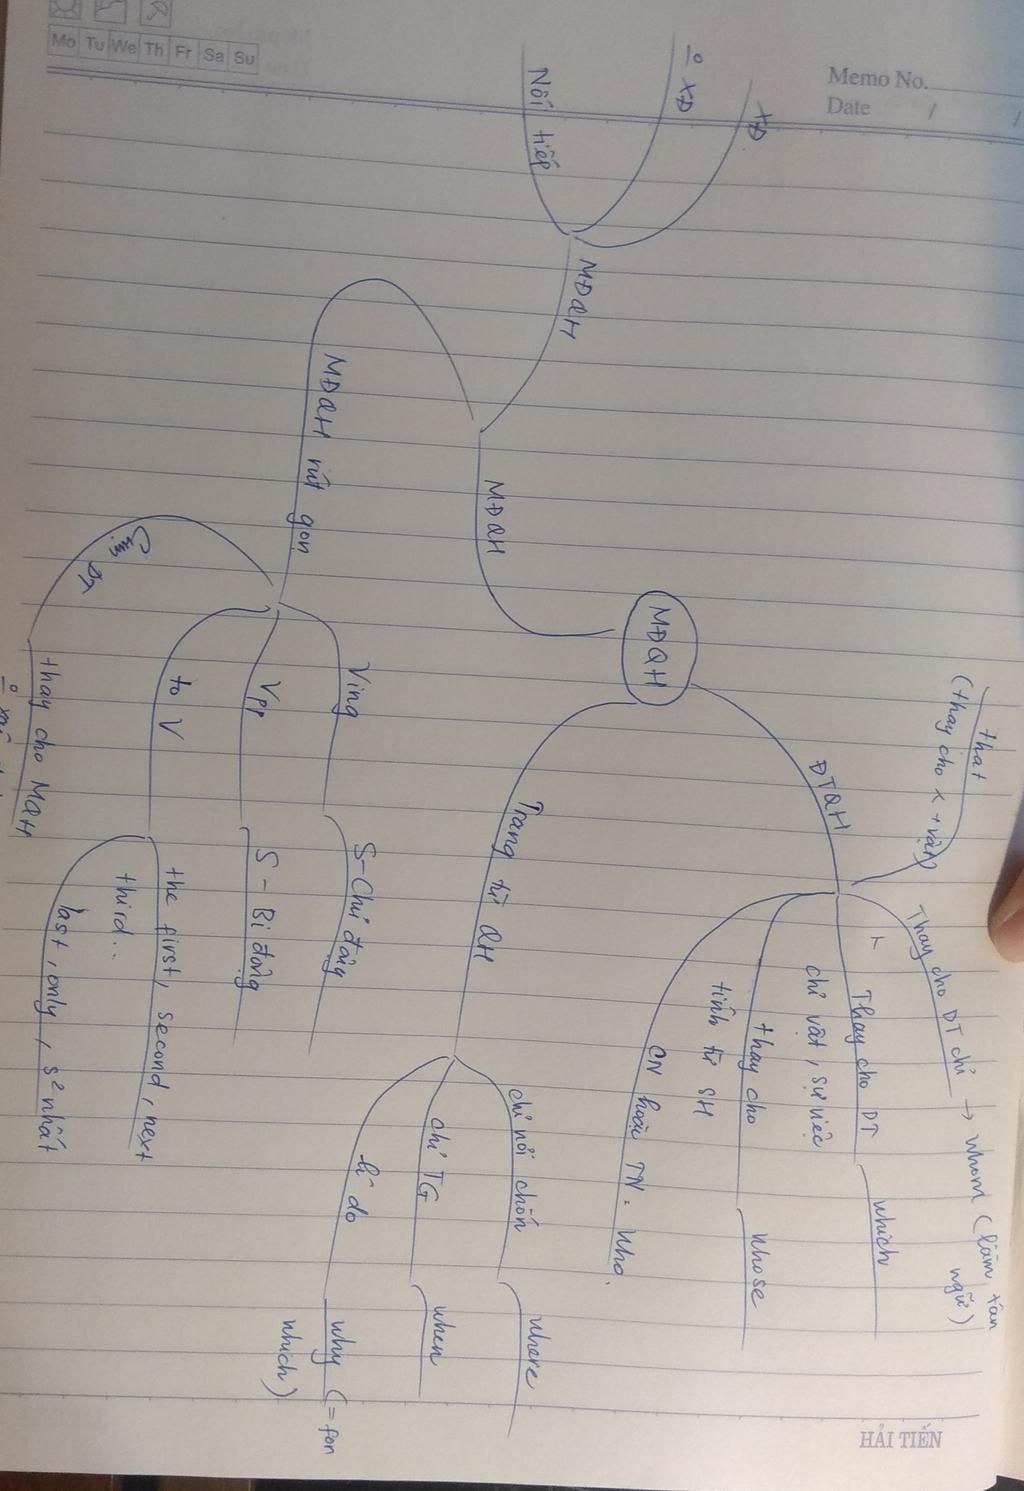 Memo No.
Date / /
Mo Tu We Th Fr Sa Su
MĐQH
ĐTQH
that
(thay cho x + vật)
Thay cho DT chỉ → whom (làm tân
ngữ)
Thay cho DT
chỉ vật, sự việc
which
thay cho
tính từ SH
whose
CN hoặc TN. Who
Trạng từ QH
chỉ nơi chốn
where
chỉ TG
when
lí do
why (= for
which)
MĐQH
MĐQH
XĐ
XĐ
Nối tiếp
MĐQH rút gọn
Ving
S-Chủ động
Vpp
S - Bị động
to V
the first, second, next
third...
last, only, s² nhất
thay cho MQH
HẢI TIẾN